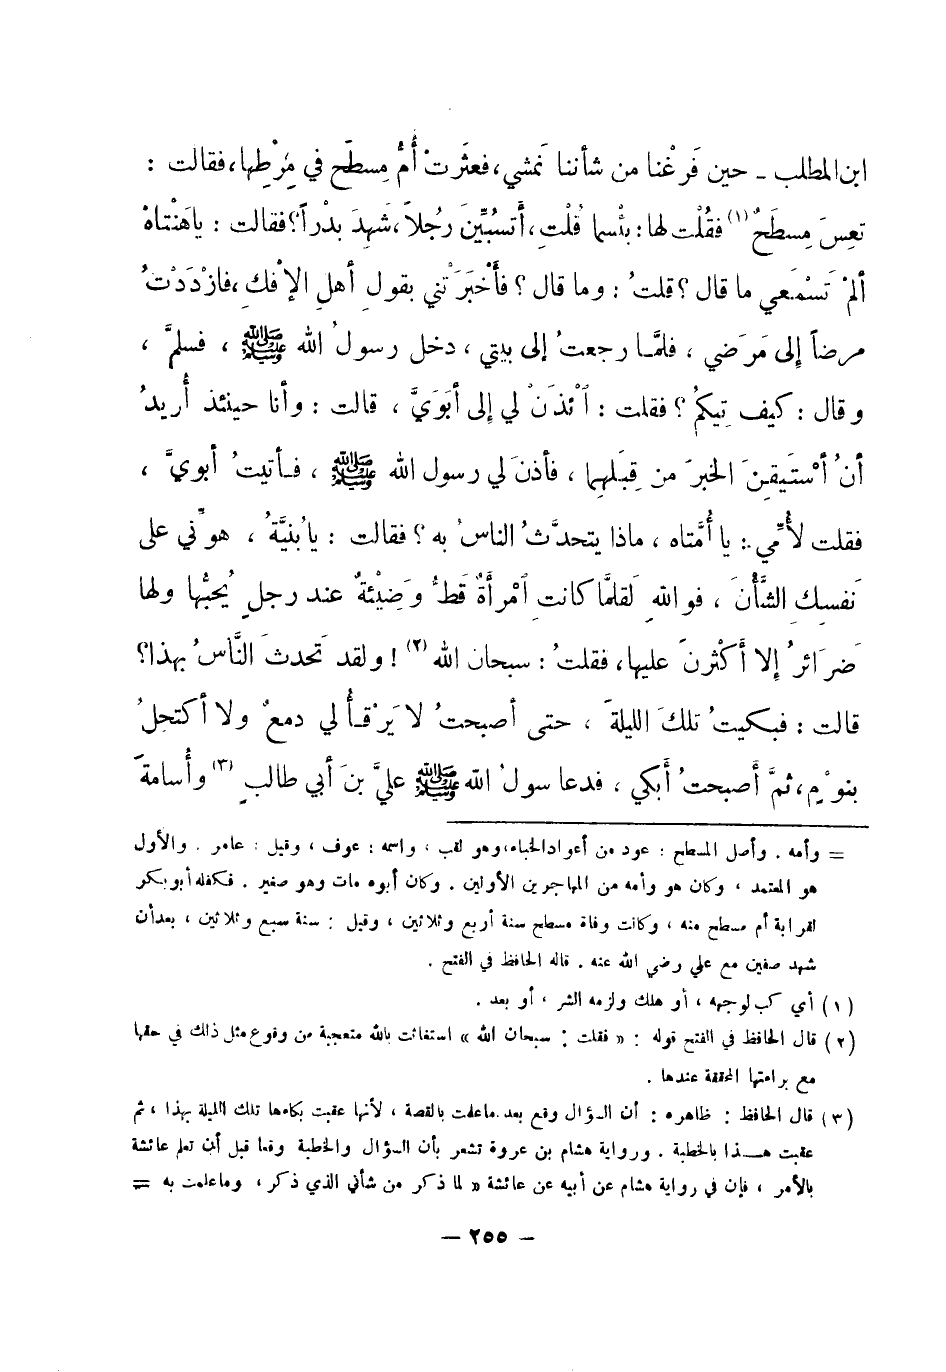 ابن المطلب - حين فَرغْنا من شأننا نَمشي، فعثَرتْ أُمُّ مِسطَح في مِرْطِها، فقالت :
تعِسَ مِسطَحٌ (١) فقُلْت لها : بئْسما قُلْتِ، أَتسُبِّينَ رجُلاً، شَهِدَ بدْراً؟ فقالت : ياهَنْتاهْ
ألمْ تَسْمَعي ما قال ؟ قلتُ : وما قال ؟ فأَخْبرَتْني بقولِ أهلِ الإفْكِ، فازْدَدْتُ
مرضاً إلى مَرَضي ، فلمَّا رجعتُ إلى بيتي ، دخل رسولُ الله ﷺ ، فسلمَّ ،
وقال : كيف تِيكمُ ؟ فقلت : اَئْذَنْ لي إلى أَبوَيَّ ، قالت : وأنا حينئذ أُريدُ
أنْ أسْتَيقِنَ الخبرَ من قِبَلِهِما ، فأذنَ لي رسول الله ﷺ ، فـأتيتُ أبويَّ ،
فقلت لأُمِّي : يا أُمَّتاه ، ماذا يتحدثُ الناسُ به ؟ فقالت : يابُنيَّةُ ، هوِّني على
نَفسِكِ الشَّأْنَ ، فو اللهِ لَقلمَّا كانتِ اَمْرأَةٌ قَطُّ وَضِيْئَةٌ عند رجلٍ يُحبُّها ولها
ضرَائرُ إلا أَكْثَرنَ عليها، فقلتُ : سبحان الله (٢) ! ولقد تَحدثَ النَّاسُ بهذا؟
قالت : فبكيتُ تلكَ الليلةَ ، حتى أصبحتُ لا يَرْقـأُ لي دمعٌ ولا أكتحِلُ
بنوْمٍ، ثمَّ أَصبحتُ أَبكي ، فدعا سولُ الله ﷺ عليَّ بنَ أبي طالبٍ (٣) وأُسامةَ
= وأمه . وأصل المسطح : عود من أعواد الخباء، وهو لقب ، واسمه : عوف ، وقيل : عامر . والأول
هو المعتمد ، وكان هو وأمه من المهاجرين الأولين . وكان أبوه مات وهو صغير . فكفله أبو بكر
لقرابة أم مسطح منه ، وكانت وفاة مسطح سنة أربع وثلاثين ، وقيل : سنة سبع وثلاثين ، بعد أن
شهد صفين مع علي رضي الله عنه . قاله الحافظ في الفتح .
(١) أي كب لوجهه ، أو هلك ولزمه الشر ، أو بعد .
(٢) قال الحافظ في الفتح قوله : « فقلت : سبحان الله » استغاثت بالله متعجبة من وقوع مثل ذلك في حقها
مع براءتها المحققة عندها .
(٣) قال الحافظ : ظاهره : أن السؤال وقع بعد ماعلمت بالقصة ، لأنها عقبت بكاءها تلك الليلة بهذا ، ثم
عقبت هـــذا بالخطبة . ورواية هشام بن عروة تشعر بأن السؤال والخطبة وقعا قبل أن تعلم عائشة
بالأمر ، فإن في رواية هشام عن أبيه عن عائشة « لما ذكر من شأني الذي ذكر ، وماعلمت به =
— ٢٥٥ —